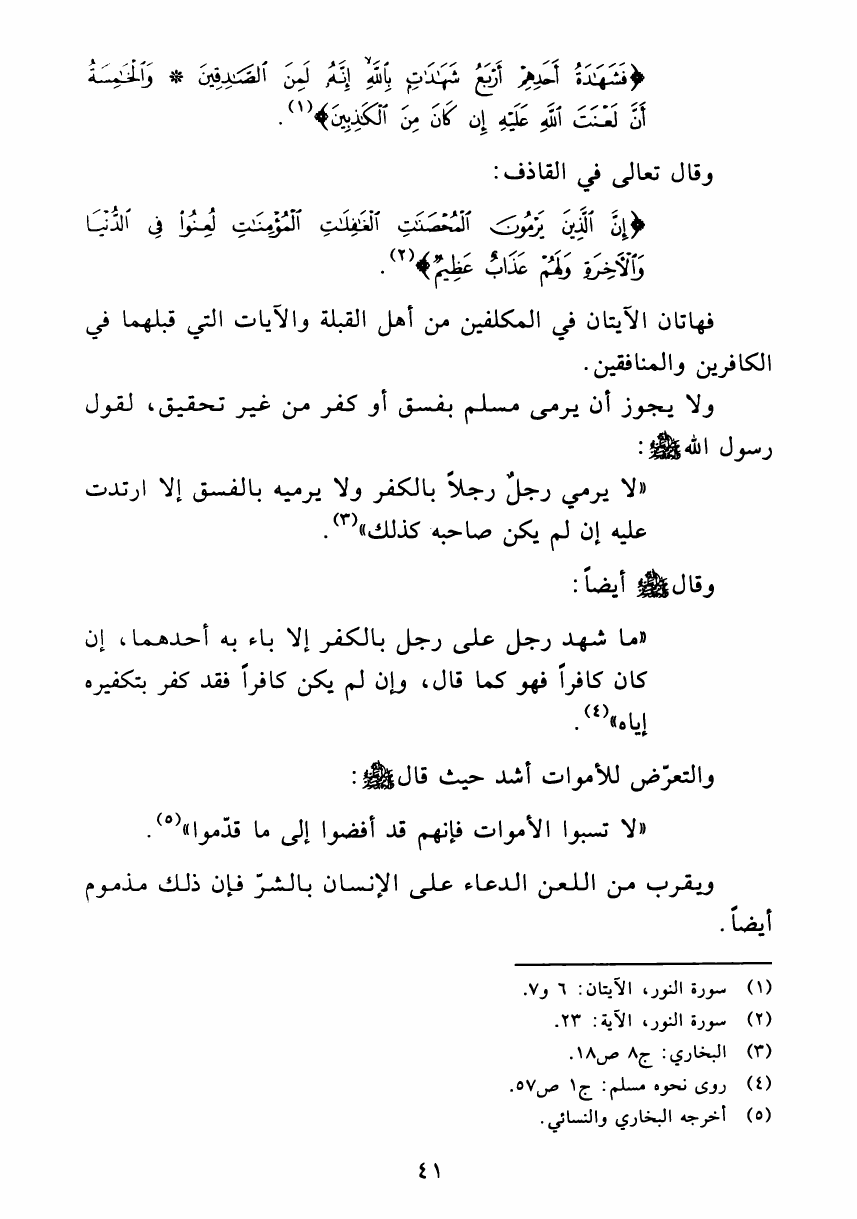 ﴿فَشَهَٰدَةُ أَحَدِهِمْ أَرْبَعُ شَهَٰدَٰتٍۭ بِٱللَّهِ ۙ إِنَّهُۥ لَمِنَ ٱلصَّٰدِقِينَ * وَٱلْخَٰمِسَةُ
أَنَّ لَعْنَتَ ٱللَّهِ عَلَيْهِ إِن كَانَ مِنَ ٱلْكَٰذِبِينَ﴾(١).
وقال تعالى في القاذف:
﴿إِنَّ ٱلَّذِينَ يَرْمُونَ ٱلْمُحْصَنَٰتِ ٱلْغَٰفِلَٰتِ ٱلْمُؤْمِنَٰتِ لُعِنُوا۟ فِى ٱلدُّنْيَا
وَٱلْأَخِرَةِ وَلَهُمْ عَذَابٌ عَظِيمٌ﴾(٢).
فهاتان الآيتان في المكلفين من أهل القبلة والآيات التي قبلهما في
الكافرين والمنافقين.
ولا يجوز أن يرمى مسلم بفسق أو كفر من غير تحقيق، لقول
رسول الله ﷺ:
«لا يرمي رجلٌ رجلاً بالكفر ولا يرميه بالفسق إلا ارتدت
عليه إن لم يكن صاحبه كذلك»(٣).
وقال ﷺ أيضاً:
«ما شهد رجل على رجل بالكفر إلا باء به أحدهما، إن
كان كافراً فهو كما قال، وإن لم يكن كافراً فقد كفر بتكفيره
إياه»(٤).
والتعرّض للأموات أشد حيث قال ﷺ:
«لا تسبوا الأموات فإنهم قد أفضوا إلى ما قدّموا»(٥).
ويقرب من اللعن الدعاء على الإنسان بالشرّ فإن ذلك مذموم
أيضاً.
(١) سورة النور، الآيتان: ٦ و٧.
(٢) سورة النور، الآية: ٢٣.
(٣) البخاري: ج٨ ص١٨.
(٤) روى نحوه مسلم: ج١ ص٥٧.
(٥) أخرجه البخاري والنسائي.
٤١